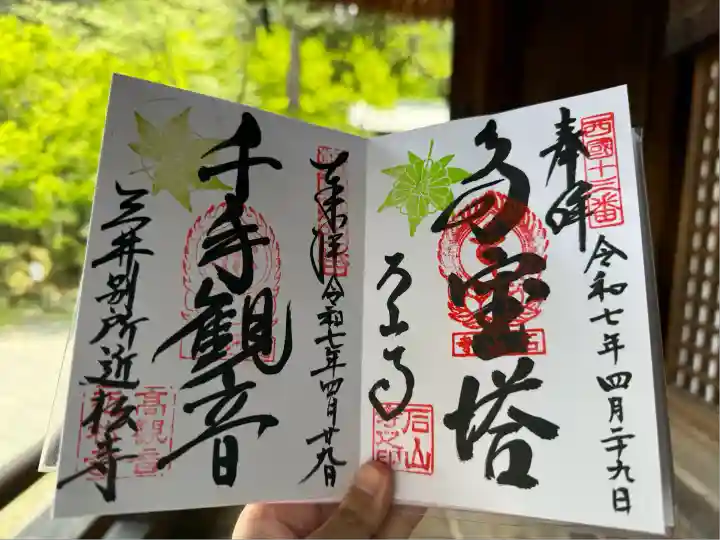 西國十三番
奉拝
令和七年四月二十九日
多宝塔
石山寺
石山
寺之印
奉拝
令和七年四月廿九日
千手観音
三井別所近松寺
高観音